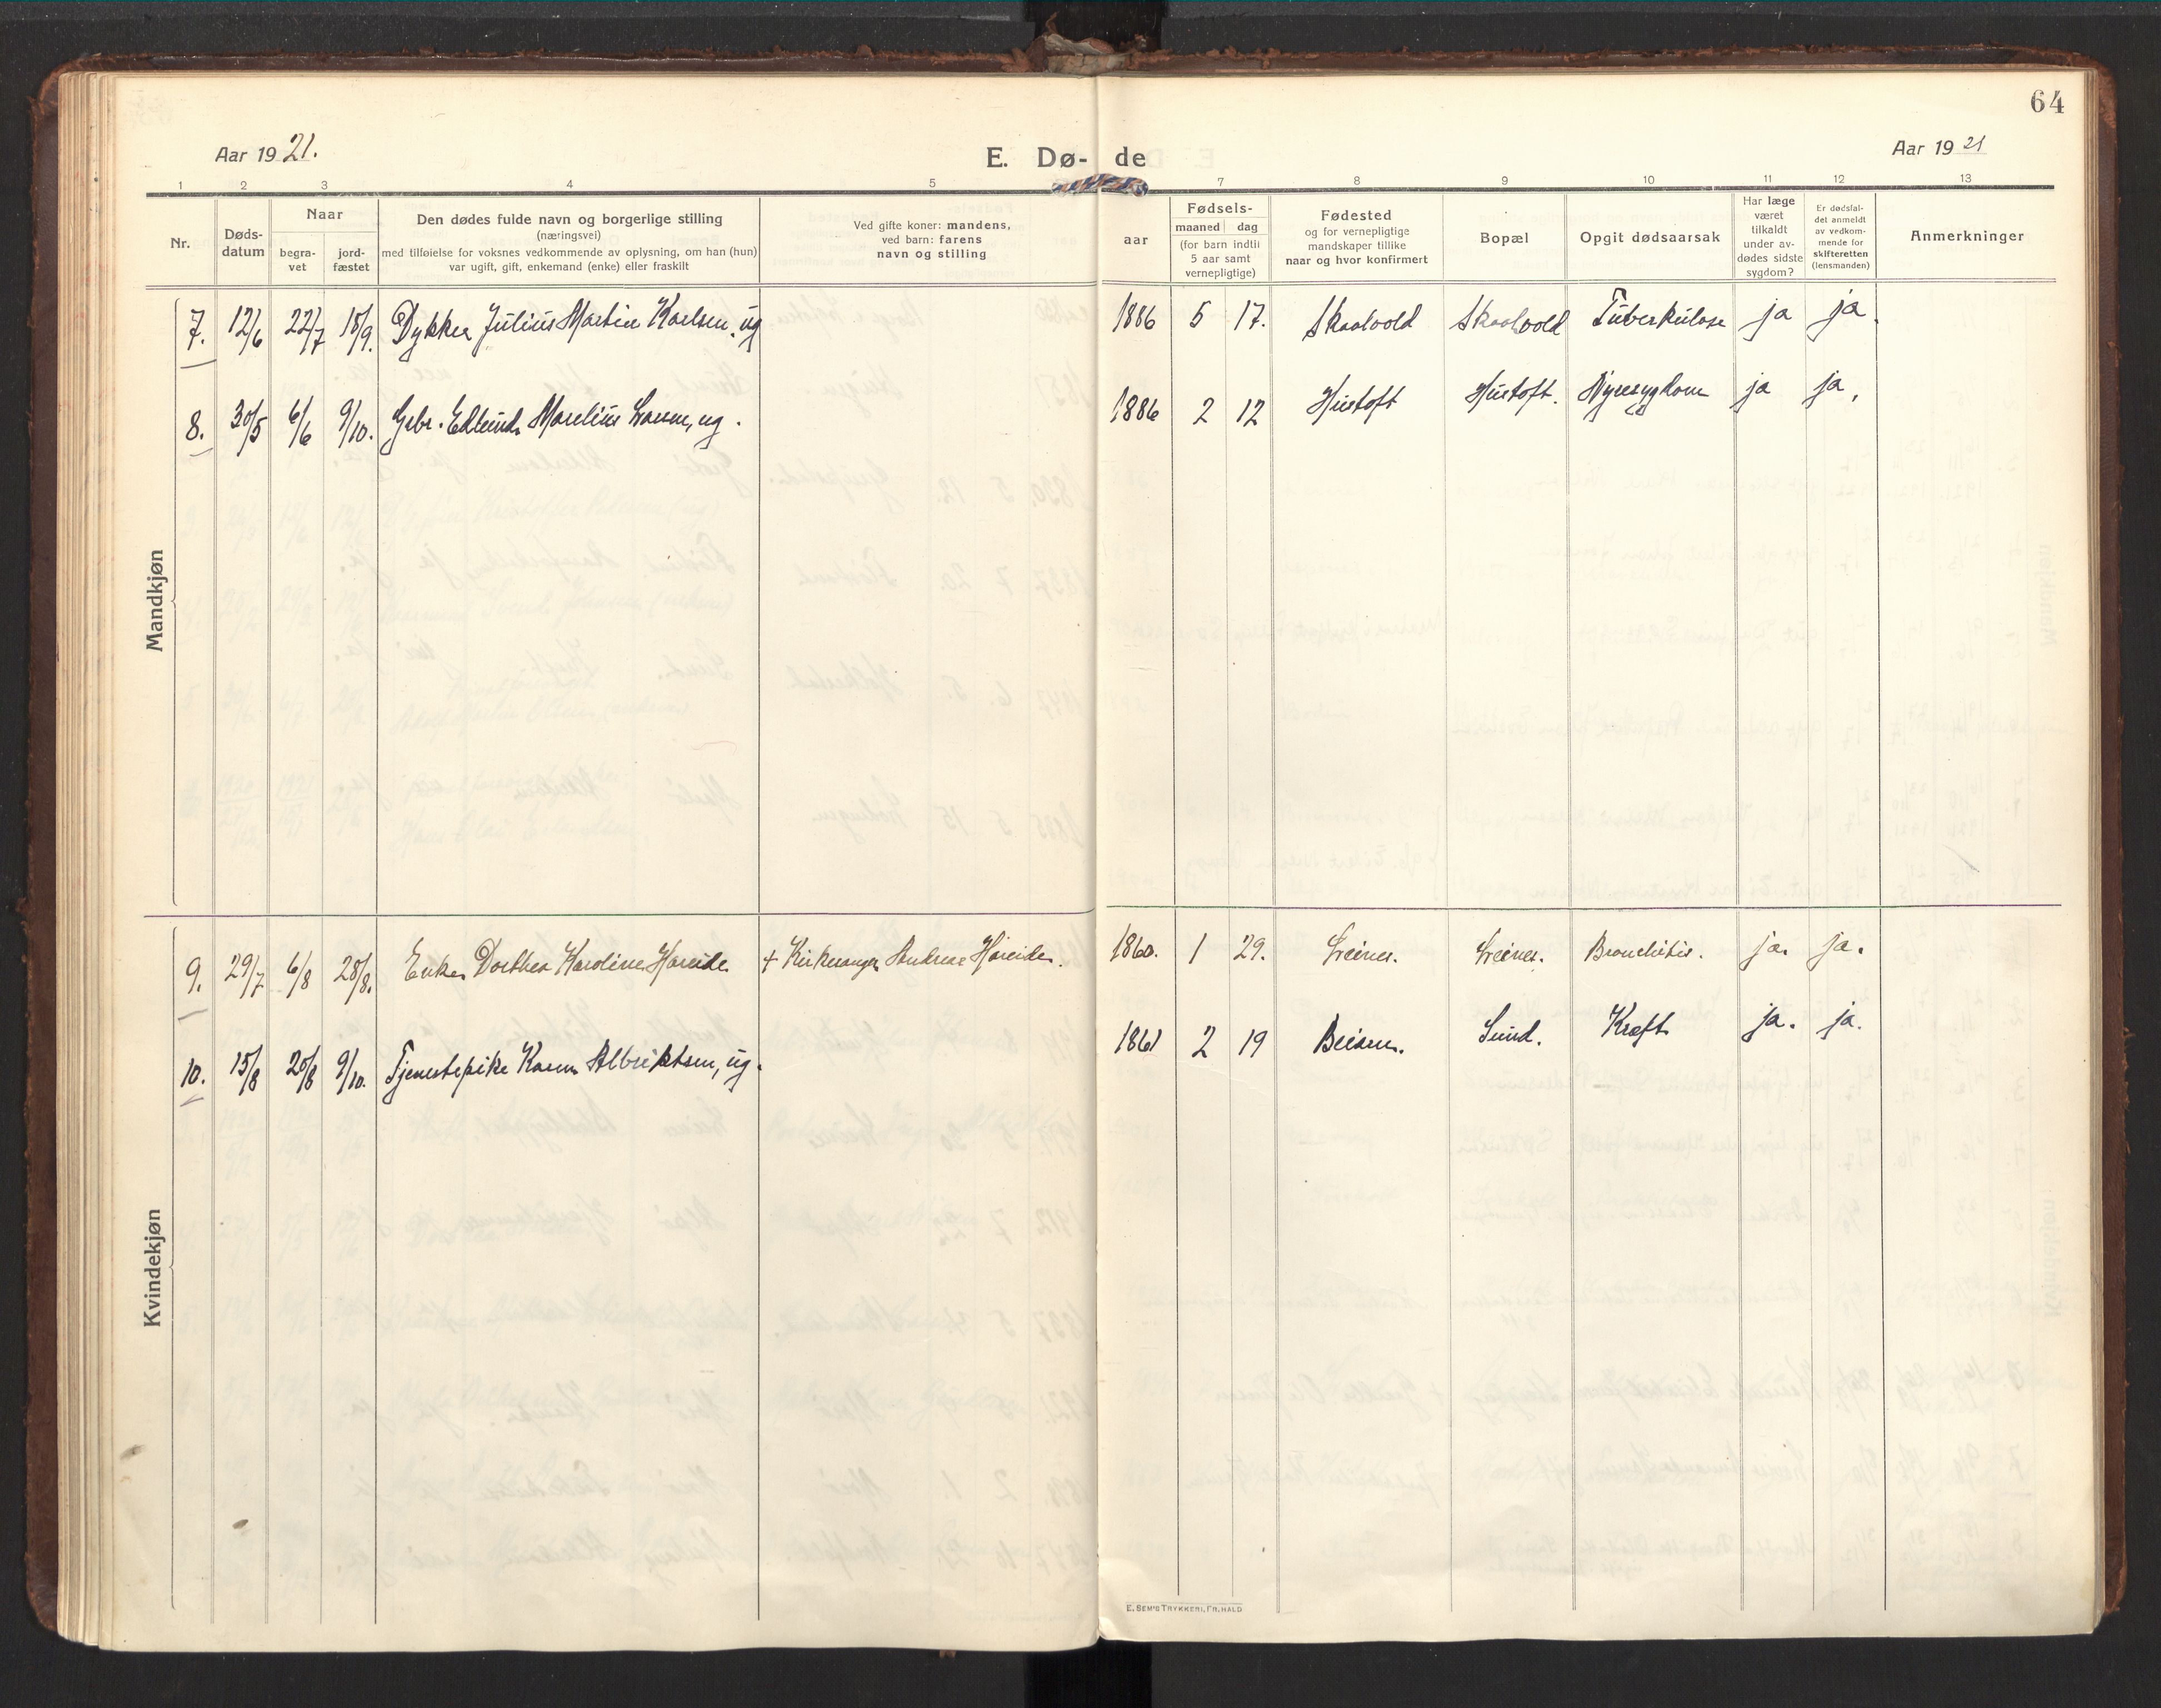 64
Aar 1921.
E. Dø- de
Aar 1921
1 2 3 4 5 7 8 9 10 11 12 13
Nr.
Døds-
datum
Naar
begra-
vet
jord-
fæstet
Den dødes fulde navn og borgerlige stilling
(næringsvei)
med tilføielse for voksnes vedkommende av oplysning, om han (hun)
var ugift, gift, enkemand (enke) eller fraskilt
Ved gifte koner: mandens,
ved barn: farens
navn og stilling
aar
Fødsels-
maaned dag
(for barn indtil
5 aar samt
vernepligtige)
Fødested
og for vernepligtige
mandskaper tillike
naar og hvor konfirmert
Bopæl
Opgit dødsaarsak
Har læge
været
tilkaldt
under av-
dødes sidste
sygdom?
Er dødsfal-
det anmeldt
av vedkom-
mende for
skifteretten
(lensmanden)
Anmerkninger
Mandkjøn
7. 12/6 22/7 18/9. Dykker Julius Martin Karlsen, ug 1886 5 17. Skaalvold Skaalvold Tuberkulose ja ja.
8. 30/5 6/6 9/10. Gbr. Edlund Marelius Larsen, ug. 1886 2 12 Hustoft Hustoft. Nyresygdom ja ja.
Kvindekjøn
9. 29/7 6/8 28/8. Enke Dorthea Karoline Hareide + Kirkesanger Andreas Hareide. 1860. 1 29. Leines. Leines. Bronchitis. ja. ja.
10. 15/8 20/8 9/10. Tjenestepike Karen Albriktsen, ug. 1861 2 19 Beiarn. Sund. Kræft ja. ja.
E. SEM'S TRYKKERI, FR. HALD